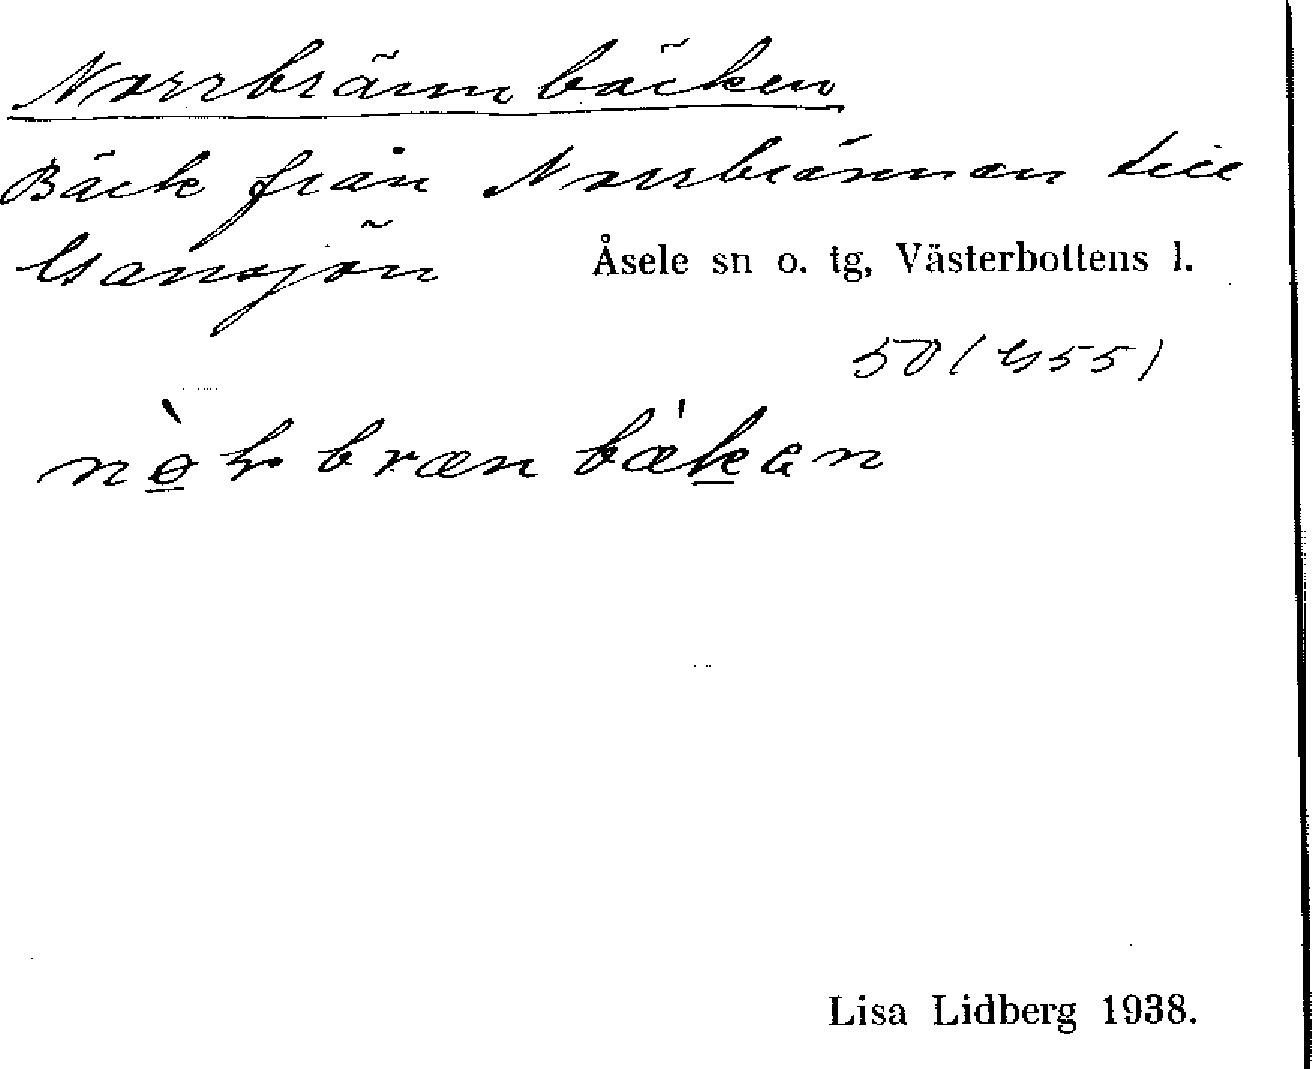 Norrbrännbäcken
Bäck från Norrbrännan till
Gansjön
Åsele sn o. tg, Västerbottens l.
50 (G55)
nò̱rbrænbæ̍ḵan
Lisa Lidberg 1938.